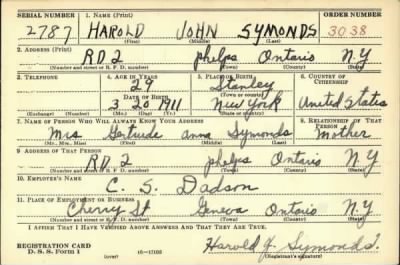 SERIAL NUMBER 1. NAME (Print) ORDER NUMBER
2787 HAROLD JOHN SYMONDS 3038
(First) (Middle) (Last)
2. ADDRESS (Print)
RD 2 Phelps Ontario N.Y
(Number and street or R. F. D. number) (Town) (County) (State)
3. TELEPHONE 4. AGE IN YEARS 5. PLACE OF BIRTH 6. COUNTRY OF CITIZENSHIP
29 Stanley
DATE OF BIRTH (Town or county)
3 20 1911 New York United States
(Exchange) (Number) (Mo.) (Day) (Yr.) (State or country)
7. NAME OF PERSON WHO WILL ALWAYS KNOW YOUR ADDRESS 8. RELATIONSHIP OF THAT PERSON
Mrs Gertrude anna Symonds Mother
(Mr., Mrs., Miss) (First) (Middle) (Last)
9. ADDRESS OF THAT PERSON
RD. 2 Phelps Ontario N.Y
(Number and street or R. F. D. number) (Town) (County) (State)
10. EMPLOYER'S NAME
C. S. Dadson
11. PLACE OF EMPLOYMENT OR BUSINESS
Cherry St Geneva Ontario N.Y
(Number and street or R. F. D. number) (Town) (County) (State)
I AFFIRM THAT I HAVE VERIFIED ABOVE ANSWERS AND THAT THEY ARE TRUE.
REGISTRATION CARD
D. S. S. Form 1 (over) Harold J. Symonds.
(Registrant's signature)